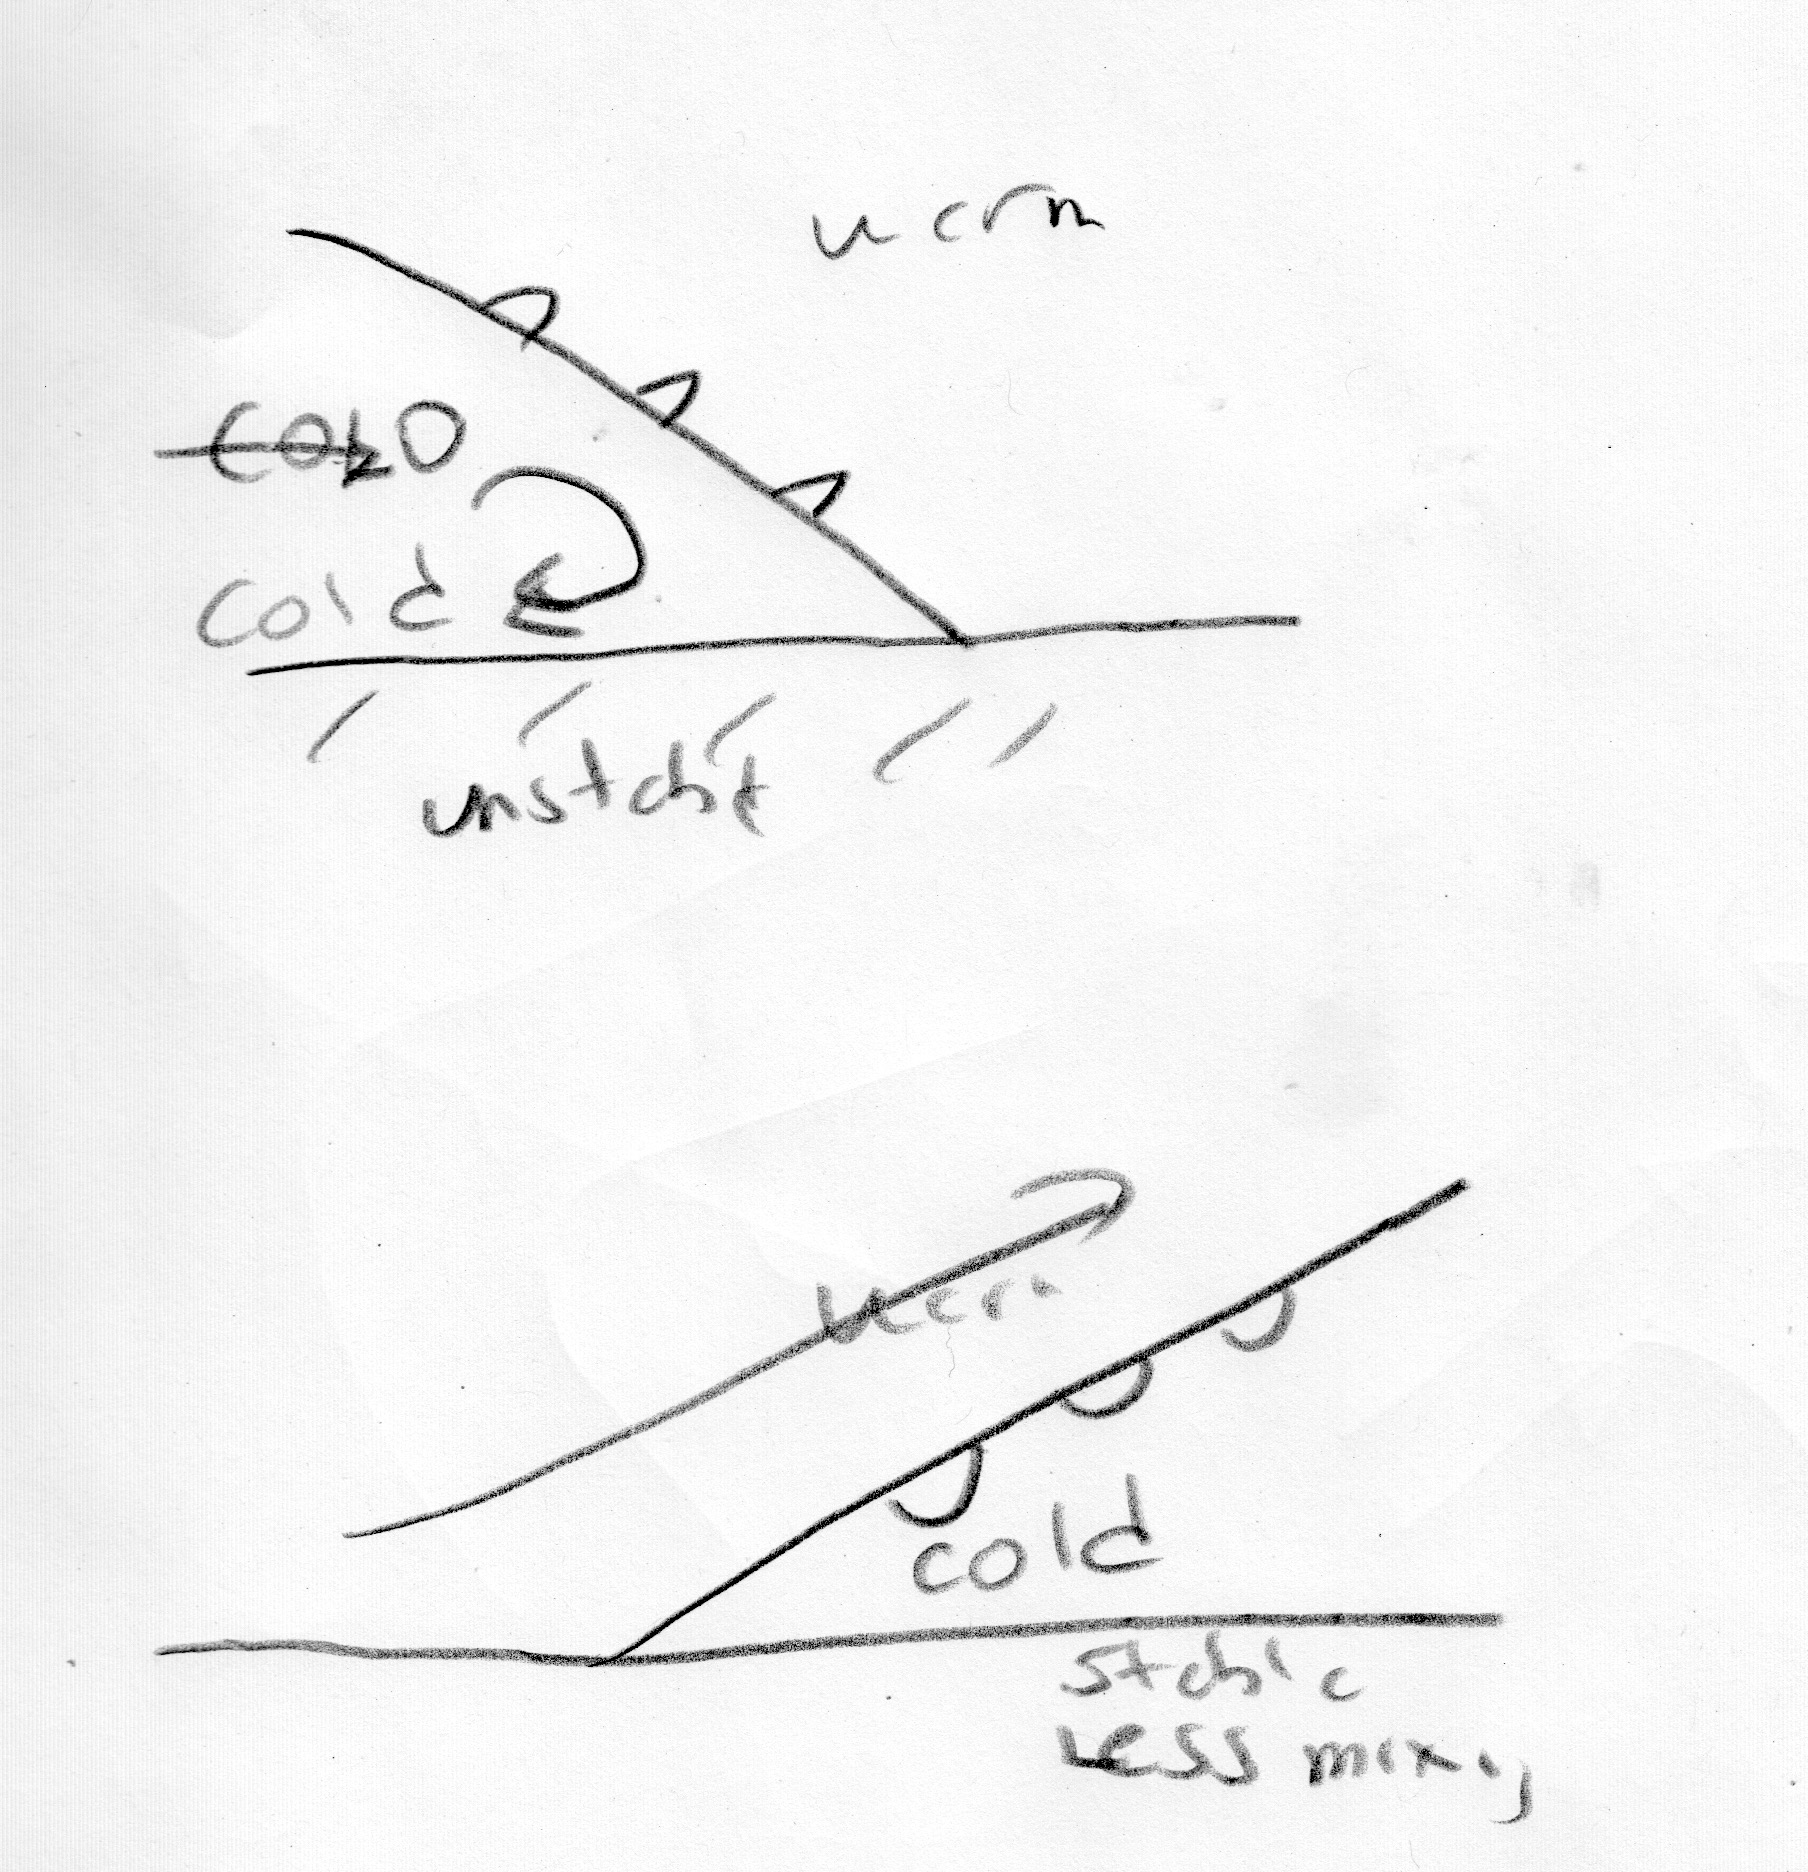 warm
COLD
cold
unstable
warm
cold
stable
Less mixing